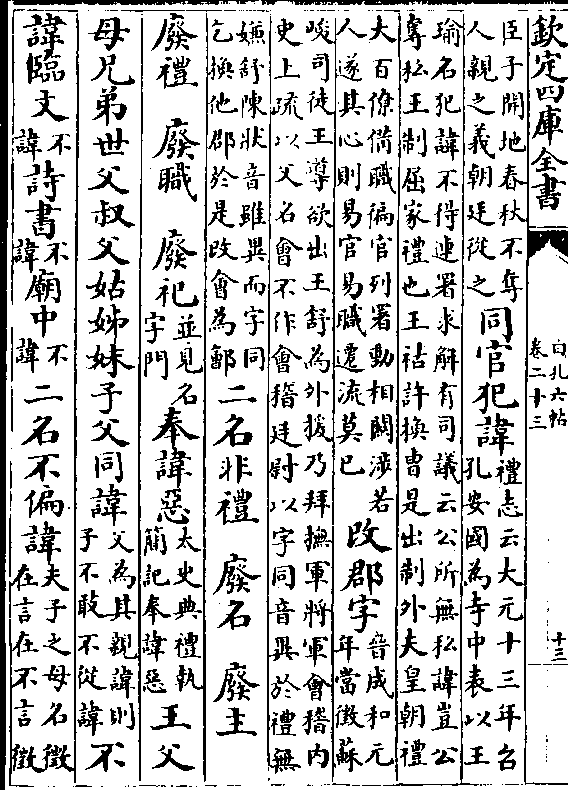 欽定四庫全書
白孔六帖
卷二十三
十三
臣子開地春秋不奪
人親之義朝廷從之
同官犯諱
禮志云大元十三年召
孔安國為寺中表以王
瑜名犯諱不得連署求解有司議云公所無私諱豈公
奪私王制屈家禮也王祜許換曹是出制外夫皇朝禮
大百僚備職徧官列署動相關涉若
人遂其心則易官易職遷流莫已
改郡字
晉成和元
年當徵蘇
峻司徒王導欲出王舒為外援乃拜撫軍將軍會稽内
史上疏以父名會不作會稽廷尉以字同音異於禮無
嫌舒陳狀音雖異而字同
乞換他郡於是改會為鄶
二名非禮 廢名 廢主
廢禮 廢職 廢祀
並見名
字門
奉諱惡
太史典禮執
簡記奉諱惡
王父
母兄弟世父叔父姑姊妹子父同諱
父為其親諱則
子不敢不從諱
不
諱臨文
不
諱
詩書
不
諱
廟中
不
諱
二名不偏諱
夫子之母名徵
在言在不言徵